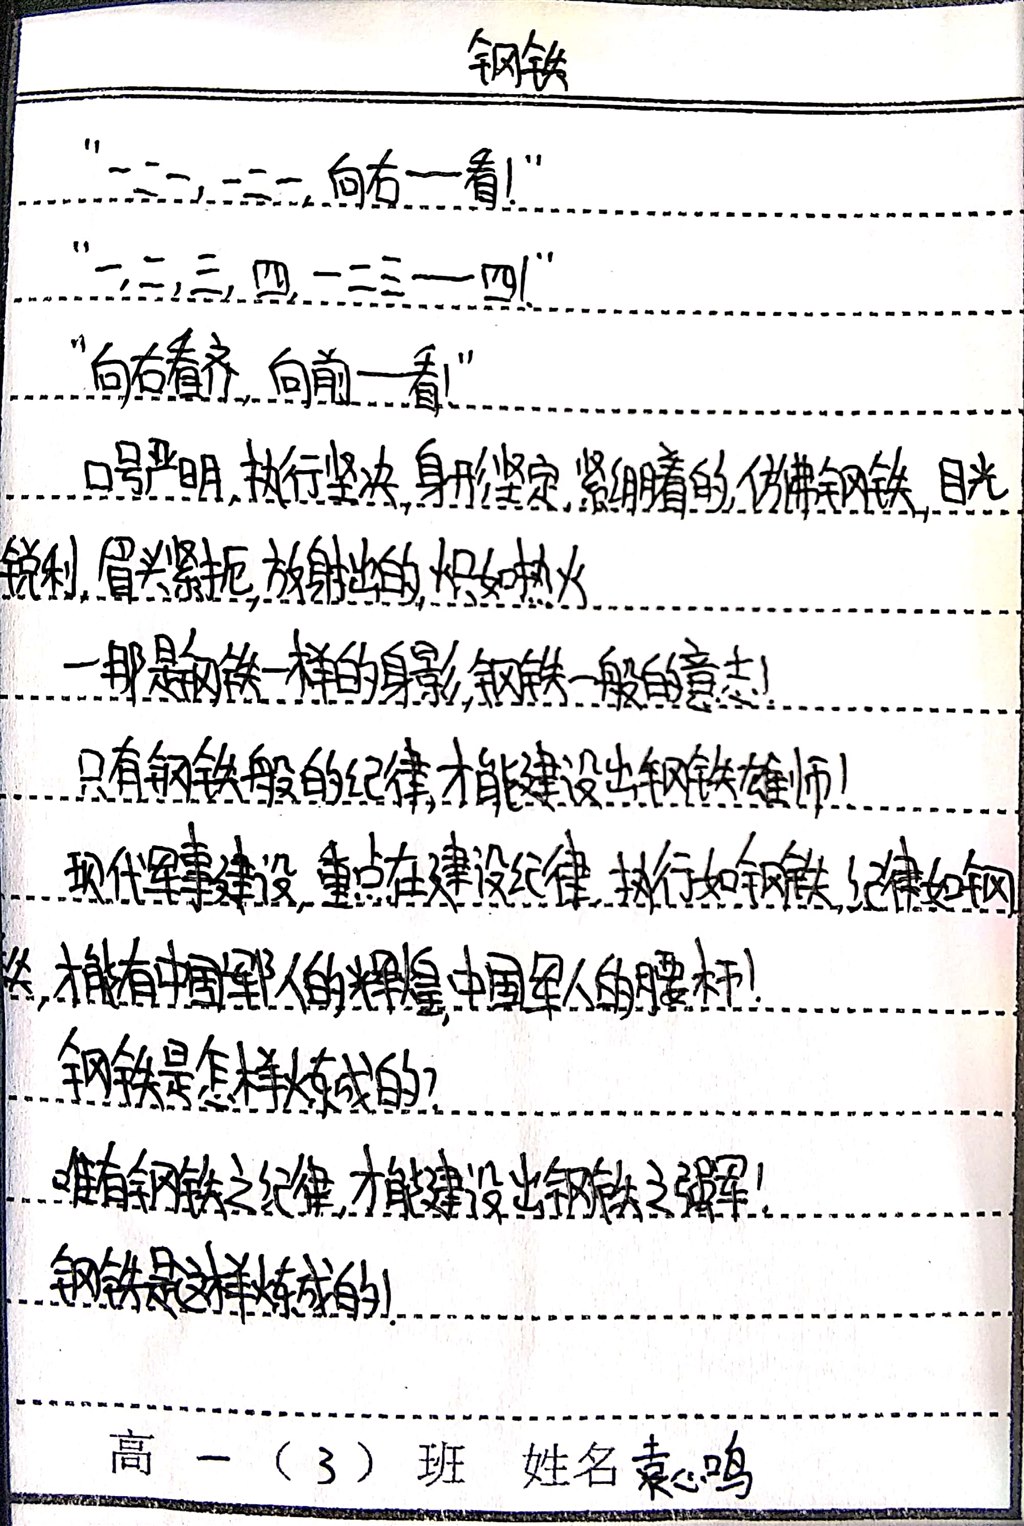 钢铁
"一二一，一二一，向右——看！"
"一，二，三，四，一二三——四！"
"向右看齐，向前——看！"
口号严明，执行坚决，身形坚定，紧绷着的，仿佛钢铁，目光
锐利，眉头紧扼，放射出的，炽如热火
一那是钢铁一样的身影，钢铁一般的意志！
只有钢铁般的纪律，才能建设出钢铁雄师！
现代军事建设，重点在建设纪律，执行如钢铁，纪律如钢
铁，才能有中国军人的辉煌，中国军人的腰杆！
钢铁是怎样炼成的？
唯有钢铁之纪律，才能建设出钢铁之强军！
钢铁是这样炼成的！
高一（3）班 姓名 袁心鸣